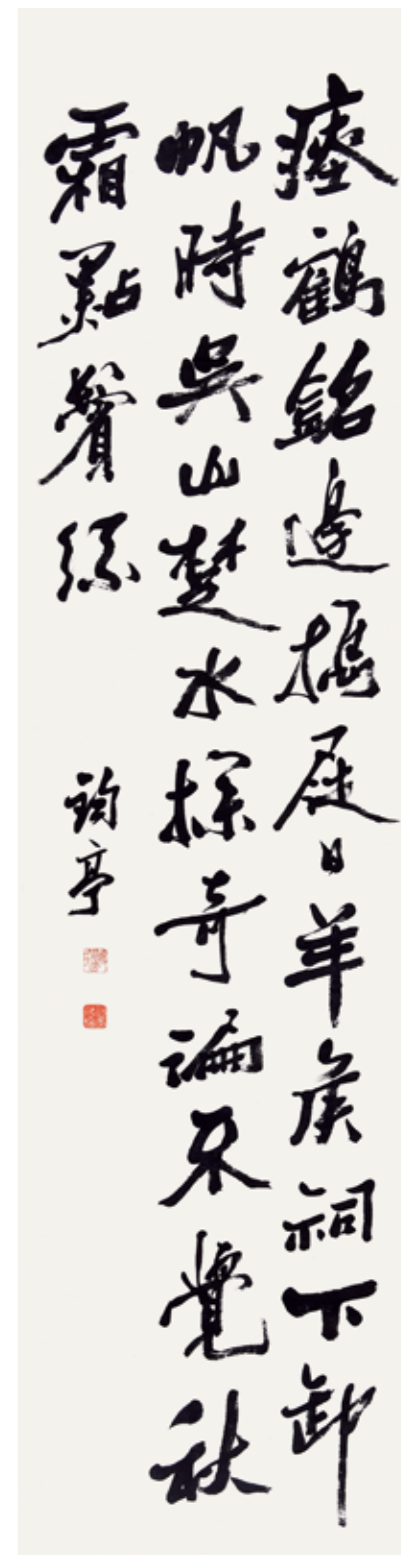 瘞鶴銘邊攜屐日羊侯祠下卸
帆時吳山楚水探奇遍不覺秋
霜點鬢絲
亭